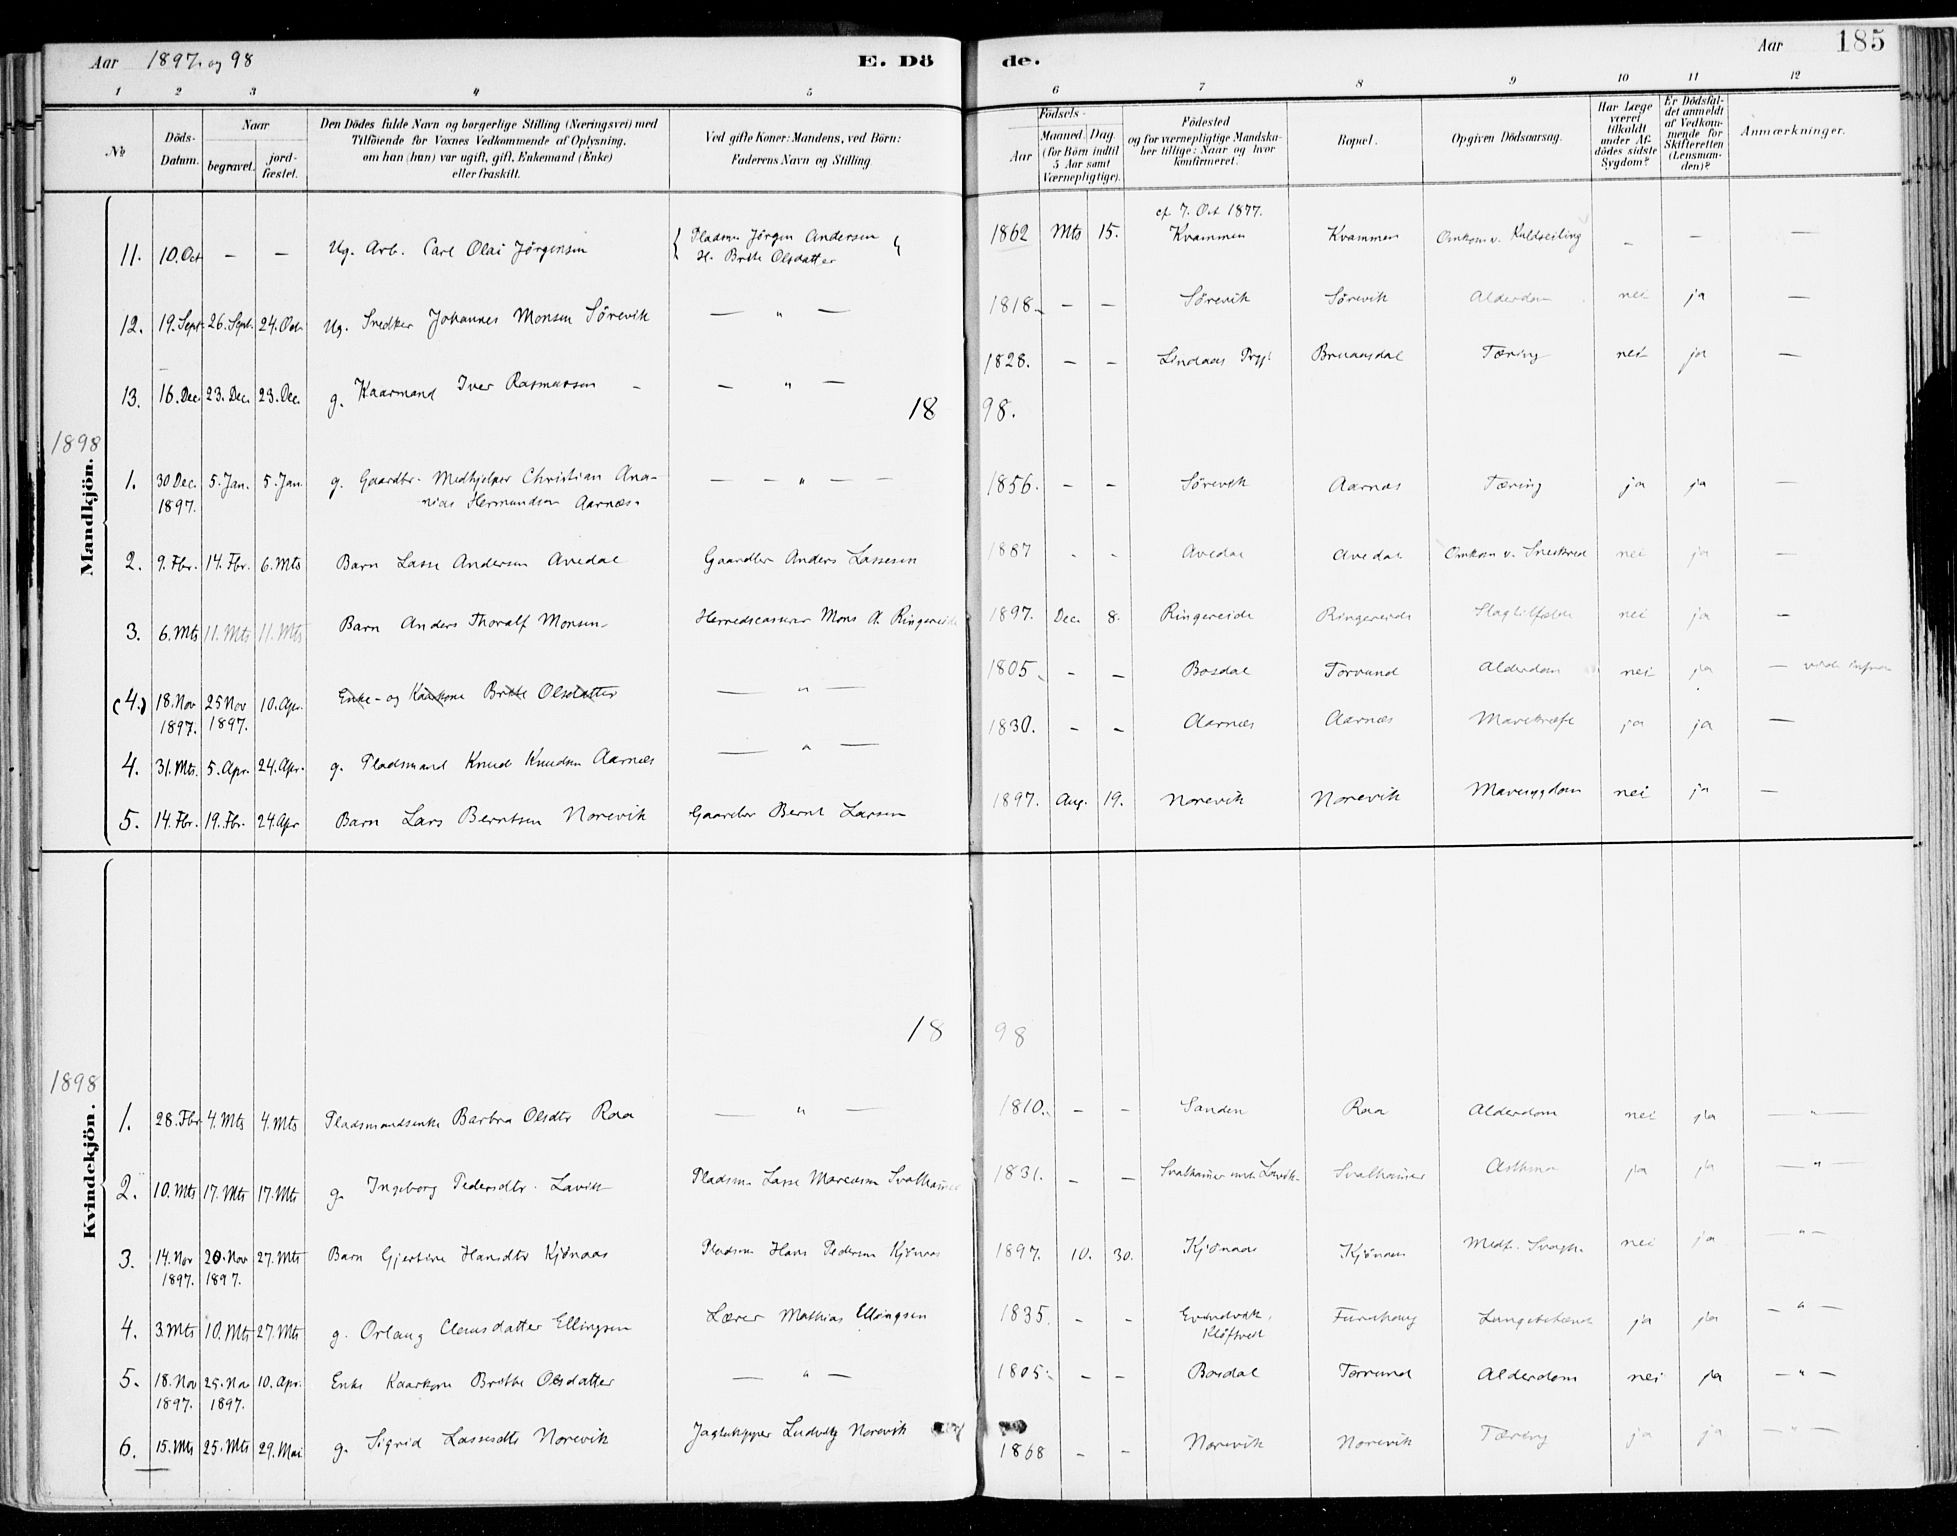 Aar 1897 og 98 E. Dö de. Aar 185
1 2 3 4 5 6 7 8 9 10 11 12
No
Döds-Datum.
Naar
begravet.
jord-fæstet.
Den Dödes fulde Navn og borgerlige Stilling (Næringsvei) med
Tilföiende for Voxnes Vedkommende af Oplysning,
om han (hun) var ugift, gift, Enkemand (Enke)
eller fraskilt.
Ved gifte Koner: Mandens, ved Börn:
Faderens Navn og Stilling.
Födsels-
Aar
Maaned. Dag.
(for Börn indtil
5 Aar samt
Værnepligtige).
Födested
og for værnepligtige Mandska-
ber tillige: Naar og hvor
konfirmeret.
Bopæl.
Opgiven Dödsaarsag.
Har Læge
været
tilkaldt
under Af-
dödes sidste
Sygdom?
Er Dödsfal-
det anmeldt
af Vedkom-
mende for
Skifteretten
(Lensman-
den)?
Anmærkninger.
Mandkjön.
cf 7. Oct 1877.
11. 10. Oct — — Ug. Arb. Carl Olai Jørgensen { Pladsm. Jørgen Andersen 1862 Mts 15. Kvammen Kvammen Omkom v. Kuldseiling — — —
H. Britte Olsdatter
12. 19. Sept. 26. Sept. 24. Oct. Ug. Snedker Johannes Monsen Sørevik — " — 1818. — — Sørevik Sørevik Alderdom nei ja —
13. 16. Dec. 23. Dec. 23. Dec. g. Kaarmand Iver Rasmussen — — " — 1828. — — Lindaas Prgj. Bruaasdal Tæring nei ja —
1898.
1898
1. 30 Dec. 1897. 5. Jan. 5. Jan. g. Gaardbr. Medhjelper Christian Ana-
nias Hermundsen Aarnæs. — — " — — 1856. — — Sørevik Aarnæs Tæring ja ja —
2. 9. Fbr. 14. Fbr. 6. Mts Barn Lasse Andersen Avedal Gaardbr Anders Lassesen 1887 - - Avedal Avedal Omkom v. Sneskred nei ja —
3. 6. Mts 11. Mts 11. Mts Barn Anders Thoralf Monsen Herredscasserer Mons A. Ringereide 1897. Dec. 8. Ringereide Ringereide Slagtilfælde nei ja —
(4.) 18. Nov 1897. 25 Nov 1897. 10. Apr. Enke- og Kaarkone Britte Olsdatter — " — 1805. — — Bosdal Torvund Alderdom nei ja — vide infra
4. 31. Mts. 5. Apr. 24. Apr. g. Pladsmand Knud Knudsen Aarnæs — " — 1830. — — Aarnæs Aarnæs Mavekræft ja ja —
5. 14. Fbr. 19. Fbr. 24. Apr Barn Lars Berntsen Norevik Gaardbr Bernt Larsen 1897. Aug. 19. Norevik Norevik Mavesygdom nei ja —
1898
1898
Kvindekjön.
1. 28. Fbr 4. Mts 4. Mts Pladsmandsenke Barbra Olsdtr Raa — " — 1810. — — Sanden Raa Alderdom nei ja — " —
2. 10. Mts 17. Mts 17. Mts g. Ingeborg Pedersdtr. Lavik Pladsm. Lasse Svalhaug 1831. — — Svalhauer Asthma ja ja — " —
3. 14. Nov 1897. 20. Nov 1897. 27. Mts Barn Gjertine Hansdtr Kjønaas Pladsm Hans Pedersen Kjønaas 1897. 10. 30. Kjønaas Kjønaas Medf. Svagh. nei ja — " —
4. 3. Mts 10. Mts 27. Mts g. Orlaug Clausdatter Ellingsen Lærer Mathias Ellingsen 1835. — — Evindvik, Furehaug Lungebetænd. ja ja — " —
5. 18. Nov 1897. 25. Nov 1897. 10. Apr. Enke Kaarkone Britte Olsdatter — " — 1805. — — Bosdal Torvund Alderdom nei ja — " —
6. 15. Mts 25. Mts 29. Mai g. Sigrid Lassesdtr Norevik Ludvig Norevik 1868 — — Norevik Norevik Tæring ja ja — " —